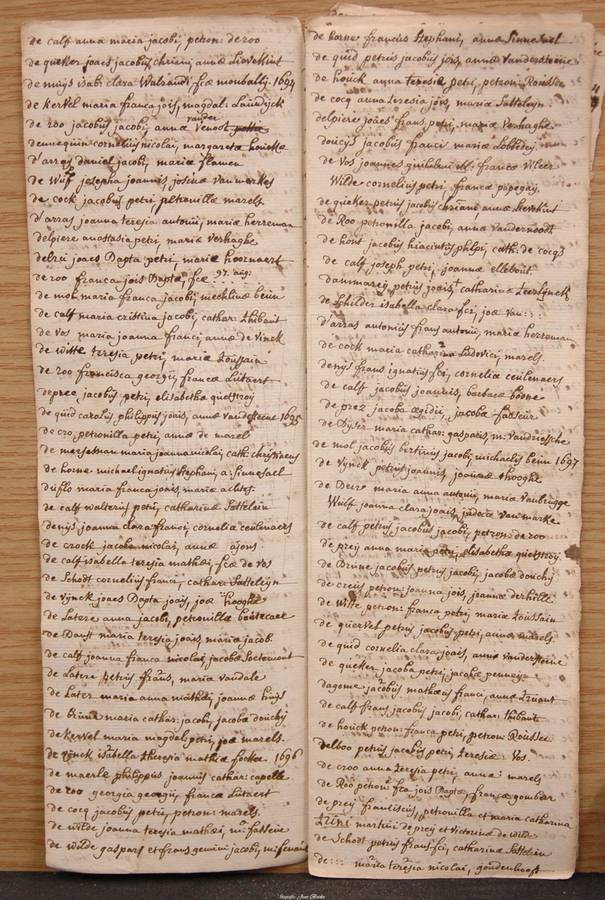 de calf anna maria jacobi, petron: de roo
de queker joaes jacobus chriani, annæ Lievekint
de muijs isab: clara Walrandi, fcæ moubally. 1694
de kervel maria franca jois, magdal:
de roo jacobus jacobi, annæ vander venoot
dennequin cornelius nicolai, margaretæ houcke
d'array daniel jacobi, mariæ flamen
de Wulf josepha joannis, josinæ van merkes
de cock jacobus petri petronillæ marels.
d'arras joanna teresia antonii, mariæ herreman
delpiere anastasia petri, mariæ verhaghe
delrii joaes Bapta petri, mariæ hoornaert
de roo franca jois Baptæ, fcæ 97. aug:
de mol maria franca jacobi, mechlinæ beun
de calf maria cristina jacobi, cathar: Thibaut
de vos maria joanna franci, annæ de vinck
de witte teresia petri, mariæ Loussain
de roo francisca georgii, francæ Lutaert
depree jacobus petri, elisabethæ questroij
de quid carolus philippus jois, annæ vandesteene 1695
de cro petronilla petri, annæ de marel
de meesseman maria joanna nicolai, cath: christiaens
de horne michael ignatius stephani, a: sinnesael
duflo maria franca jois, mariæ achtes.
de calf walterus petri, catharinæ Sattelein
denys joanna clara franci, cornelia ceulenaers
de crock jacoba nicolai, annæ ajons
de calf isabella teresia mathæi, fcæ de vos
de Schodt cornelius franci, cathar: Satteleyn
de vynck joaes Bapta jois, joæ hooghe
de Latere anna jacobi, petronillæ boutecaer
de Daust maria teresia jois, mariæ jacob.
de calf joanna franca nicolai, jacobæ Soetemont
de Latere petrus frans, maria vandale
de Later maria anna mathæi, joannæ huys
de brune maria cathar: jacobi, jacobæ douchy
de kervel maria magdal: petri, joæ marels.
de vynck isabella theresia mathiæ fockæ. 1696
de maerle philippus joannis cathar: capelle
de roo georgia georgii, francæ Lutaert
de cocq jacobus petri, petron: marels.
de wilde joanna teresia mathæi, m: fasseur
de wilde gaspars et frans gemini jacobi, m:
de horne francus stephani, annæ Sinnesael
de quid petrus jacobus jois, annæ vandersteene
de houck anna teresia petri, petron: Rousse
de cocq anna teresia jois, mariæ Satteleyn
delpiere joaes frans petri, mariæ verhaghe
doucij jacobus franci mariæ lobbedey
de vos joannes guilielmi et francæ vileers
Wilte cornelius petri francæ
de queker petrus jacobus chriani, annæ
de Roo petronilla jacobi, annæ vandernoodt
de hont jacobus hiacintus philpi, cath: de cocq
de calf joseph petri, joannæ ellebout
daumarey petrus joais, catharinæ Leerlynck
de Schilder isabella clara fci, joæ van:::
d'arras antonius frans antonii, mariæ herreman
de cock maria catharina Ludovici, marels.
denys frans ignatius fci, cornelia ceulenaers
de calf jacobus joannis, barbaræ boone
de prez jacoba ægidii, jacobæ fasseur.
de Dyser maria cathar: gasparis, m: Vandriessche
de mol jacobus bertinus jacobi, michaelis beun 1697
de Vynck petrus joannis, joannæ thooghe
de Deire maria anna antonii, mariæ Vanbrugge
Wulf joanna clara joais, judoca Van marke
de calf petrus jacobus jacobi, petron: de roo
de prey anna maria petri, elisabethæ questroij
de Brune jacobus petrus jacobi, jacobæ douchij
de creus petron: joanna jois, joannæ derhille
de Witte petron: franca petri, mariæ Loussain
de quervel petrus jacobus petri, annæ marels
de quid cornelia clara joais, annæ vandersteene
de queker jacoba petri, jacobæ penneyn
dagome jacobus mathæus franci, annæ Truant
de calf frans jacobus jacobi, cathar: thibaut
de houck petron: franca petri, petron: Rousse
Delboo petrus jacobus petri, Teresiæ Vos.
de croo anna teresia petri, annæ marels
de Roo petron: fca jois Baptæ, francæ gombeir
de prey franciscus, petronilla et maria catharina
Trini martini de prey et Victorina de wilde
de Schodt petrus frans fci, catharinæ Sattelein
de::: maria teresia nicolai, goudenhooft